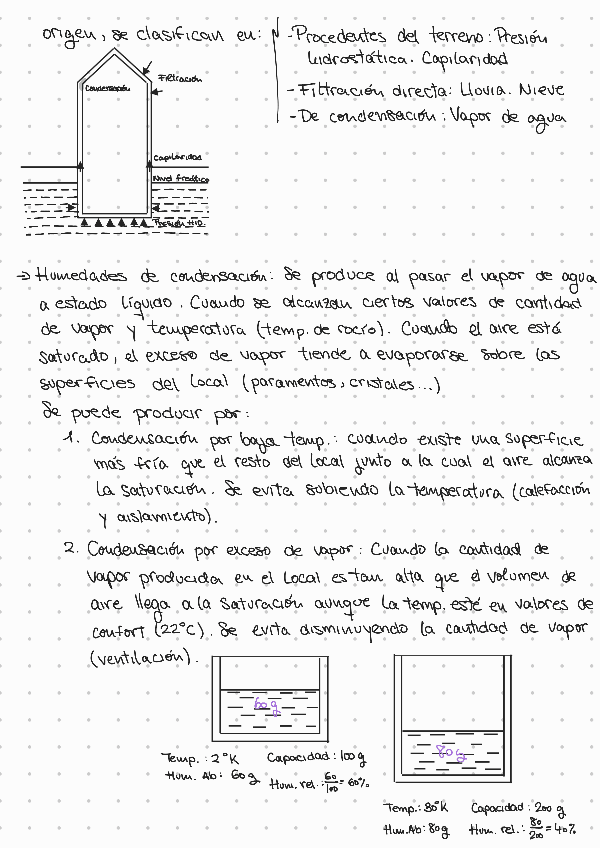 origen, se clasifican en:
- Procedentes del terreno: Presión
hidrostática. Capilaridad
- Filtración directa: Lluvia. Nieve
- De condensación: Vapor de agua
Filtración
Condensación
Capilaridad
Nivel freático
Presión HID.
→ Humedades de condensación: Se produce al pasar el vapor de agua
a estado líquido. Cuando se alcanzan ciertos valores de cantidad
de vapor y temperatura (temp. de rocío). Cuando el aire está
saturado, el exceso de vapor tiende a evaporarse sobre las
superficies del local (paramentos, cristales...)
Se puede producir por:
1. Condensación por baja temp.: cuando existe una superficie
más fría que el resto del local junto a la cual el aire alcanza
la saturación. Se evita subiendo la temperatura (calefacción
y aislamiento).
2. Condensación por exceso de vapor: Cuando la cantidad de
vapor producida en el local es tan alta que el volumen de
aire llega a la saturación aunque la temp. esté en valores de
confort (22°C). Se evita disminuyendo la cantidad de vapor
(ventilación).
60 g
80 g
Temp.: 2°K Capacidad: 100 g
Hum. Ab: 60 g Hum. rel.: 60/100 = 60%
Temp.: 80°K Capacidad: 200 g
Hum. Ab: 80 g Hum. rel.: 80/200 = 40%